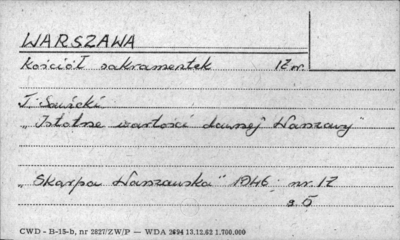 WARSZAWA
Kościół sakramentek 17 w.
T. Sawicki
„Istotne wartości dawnej Warszawy"
„Skarpa Warszawska" 1946 nr. 17
s. 5
CWD - B-15-b, nr 2827/ZW/P — WDA 2694 13.12.62 1.700.000